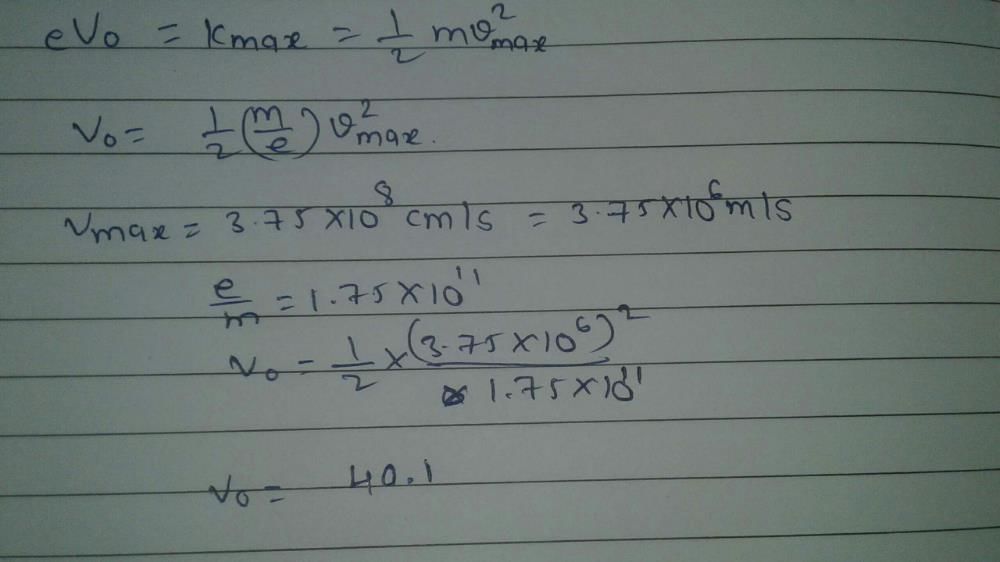 eV₀ = Kmax = 1/2 mv²max
V₀ = 1/2 (m/e) v²max.
Vmax = 3.75×10⁸ cm/s = 3.75×10⁶ m/s
e/m = 1.75×10¹¹
V₀ = 1/2 × (3.75×10⁶)² / 1.75×10¹¹
V₀ = 40.1